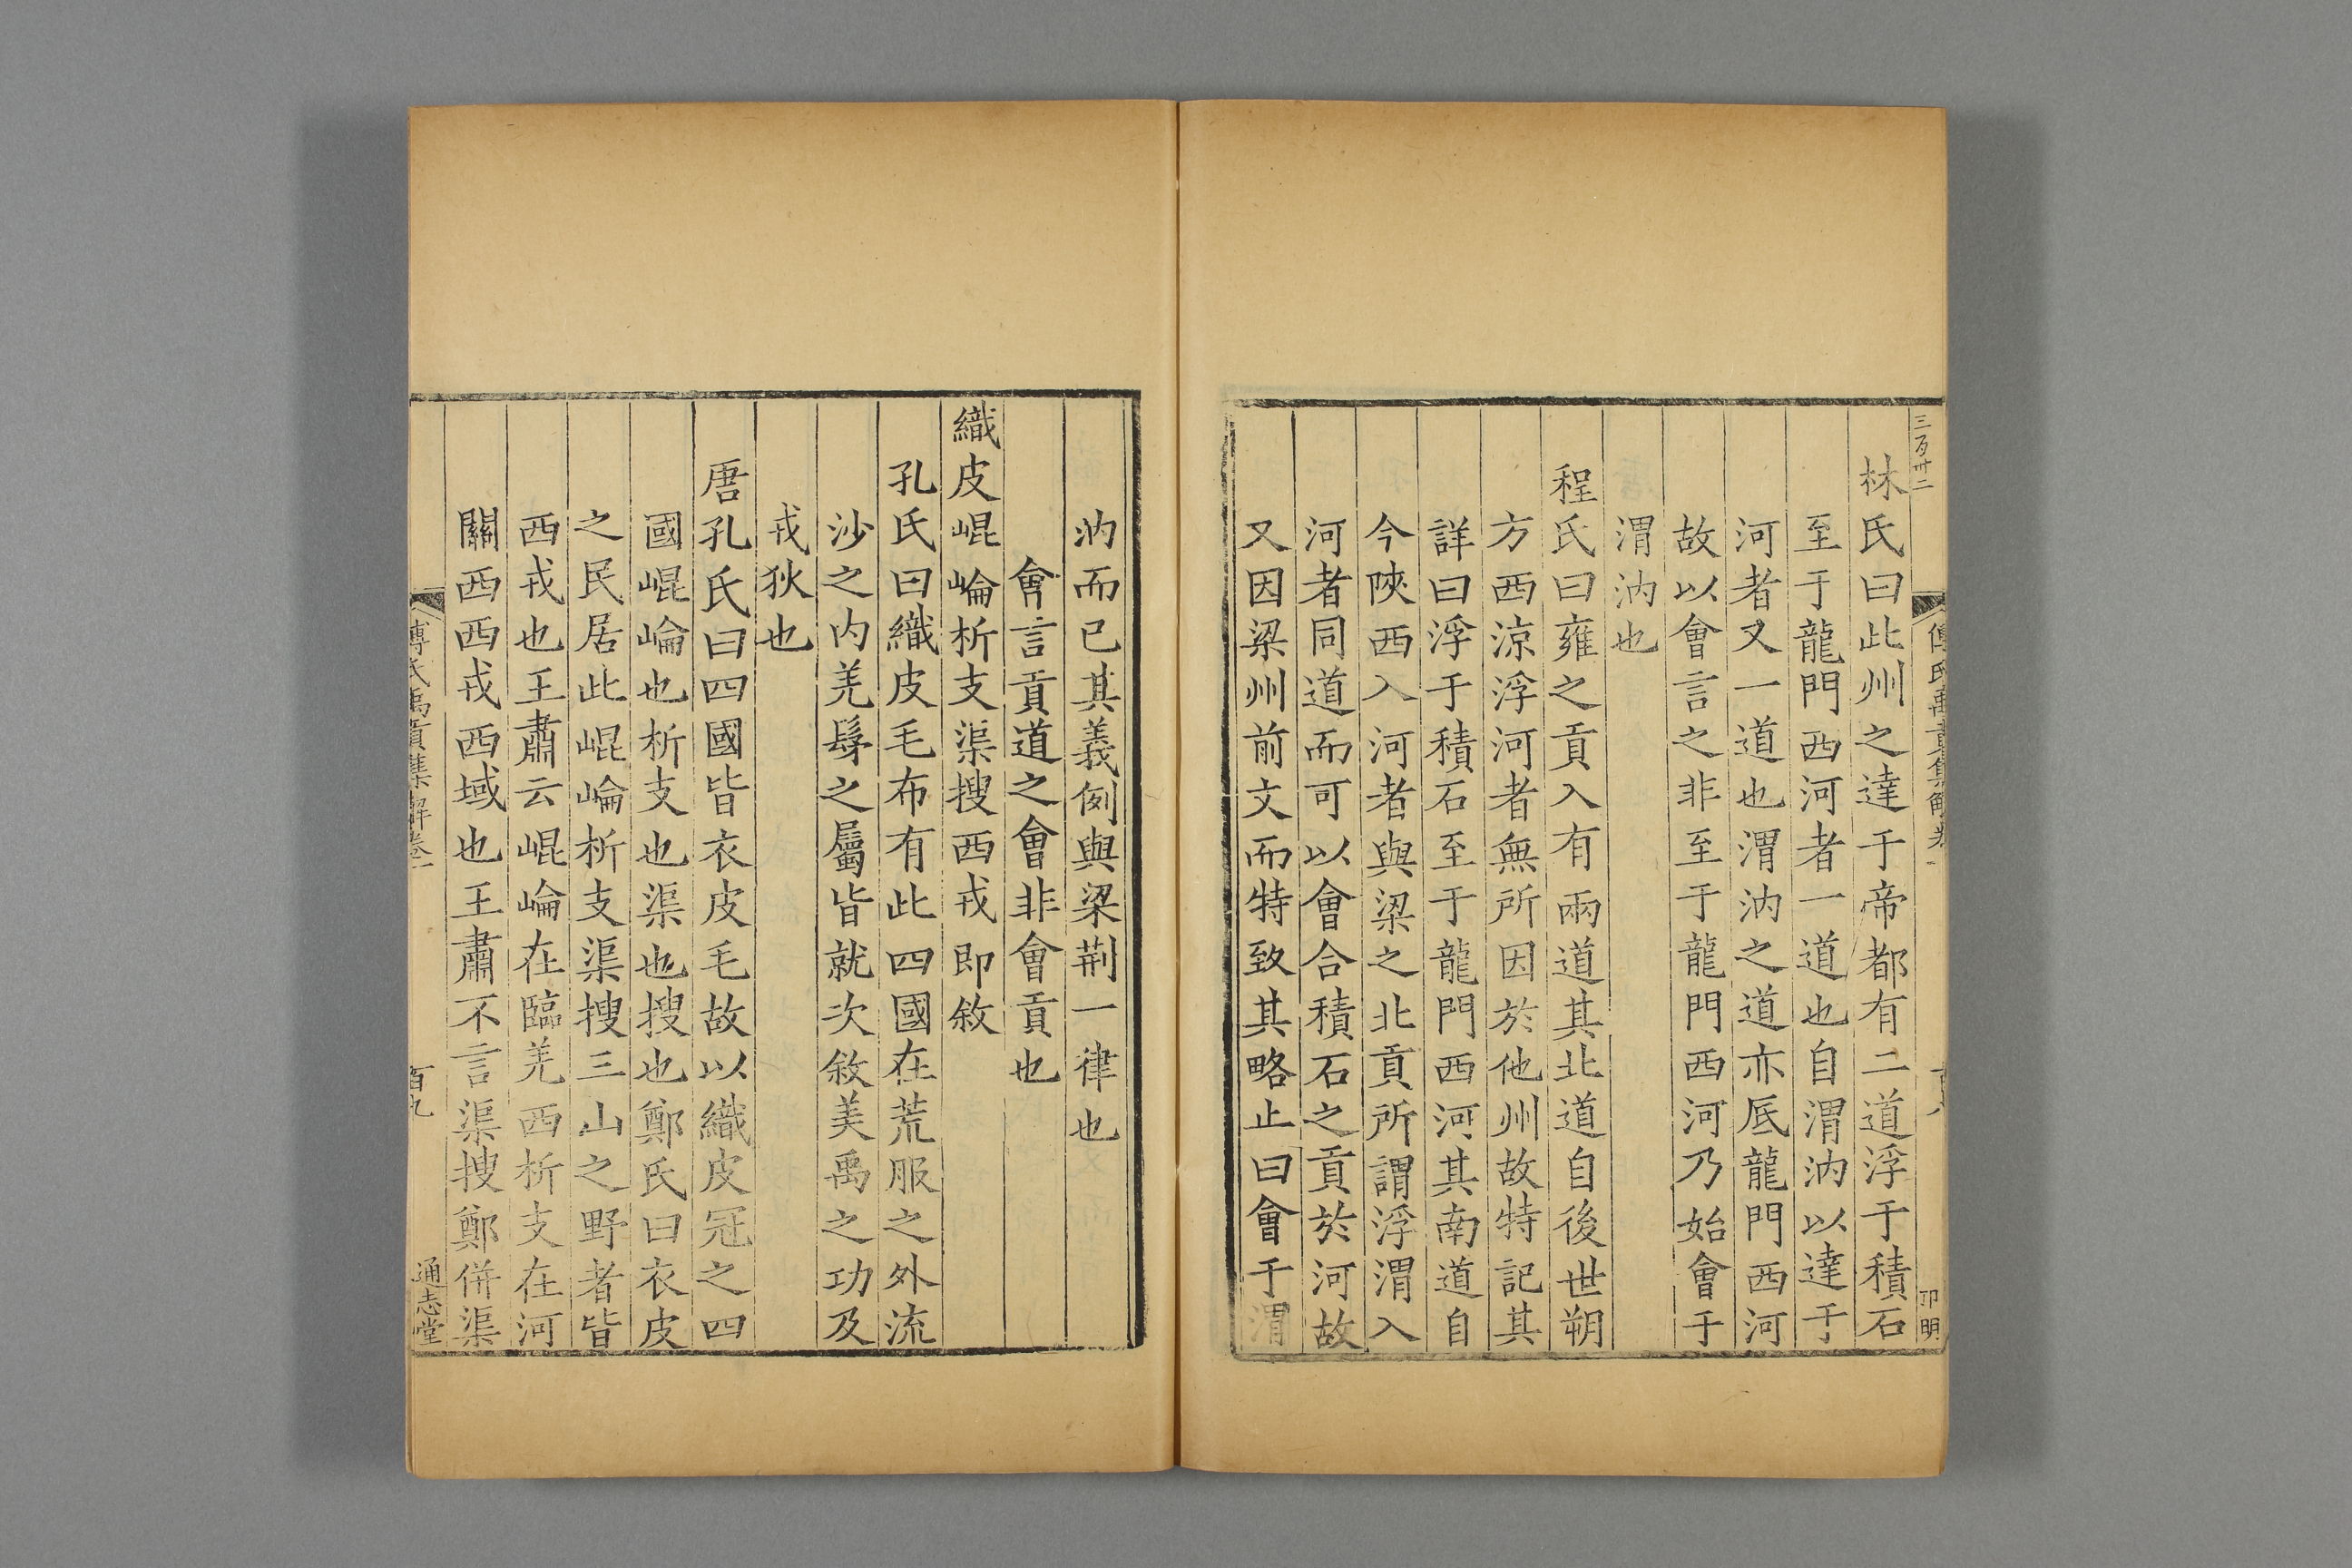 三百卅二
傅氏禹貢集解卷一
百八
卬明
林氏曰此州之達于帝都有二道浮于積石
至于龍門西河者一道也自渭汭以達于
河者又一道也渭汭之道亦底龍門西河
故以會言之非至于龍門西河乃始會于
渭汭也
程氏曰雍之貢入有兩道其北道自後世朔
方西涼浮河者無所因於他州故特記其
詳曰浮于積石至于龍門西河其南道自
今陝西入河者與梁之北貢所謂浮渭入
河者同道而可以會合積石之貢於河故
又因梁州前文而特致其略止曰會于渭
汭而已其義例與梁荆一律也
會言貢道之會非會貢也
織皮崐崘析支渠搜西戎即敘
孔氏曰織皮毛布有此四國在荒服之外流
沙之内羌髳之屬皆就次敘美禹之功及
戎狄也
唐孔氏曰四國皆衣皮毛故以織皮冠之四
國崐崘也析支也渠也搜也鄭氏曰衣皮
之民居此崐崘析支渠搜三山之野者皆
西戎也王肅云崐崘在臨羌西析支在河
關西西戎西域也王肅不言渠搜鄭併渠
傅氏禹貢集解卷一
百九
通志堂